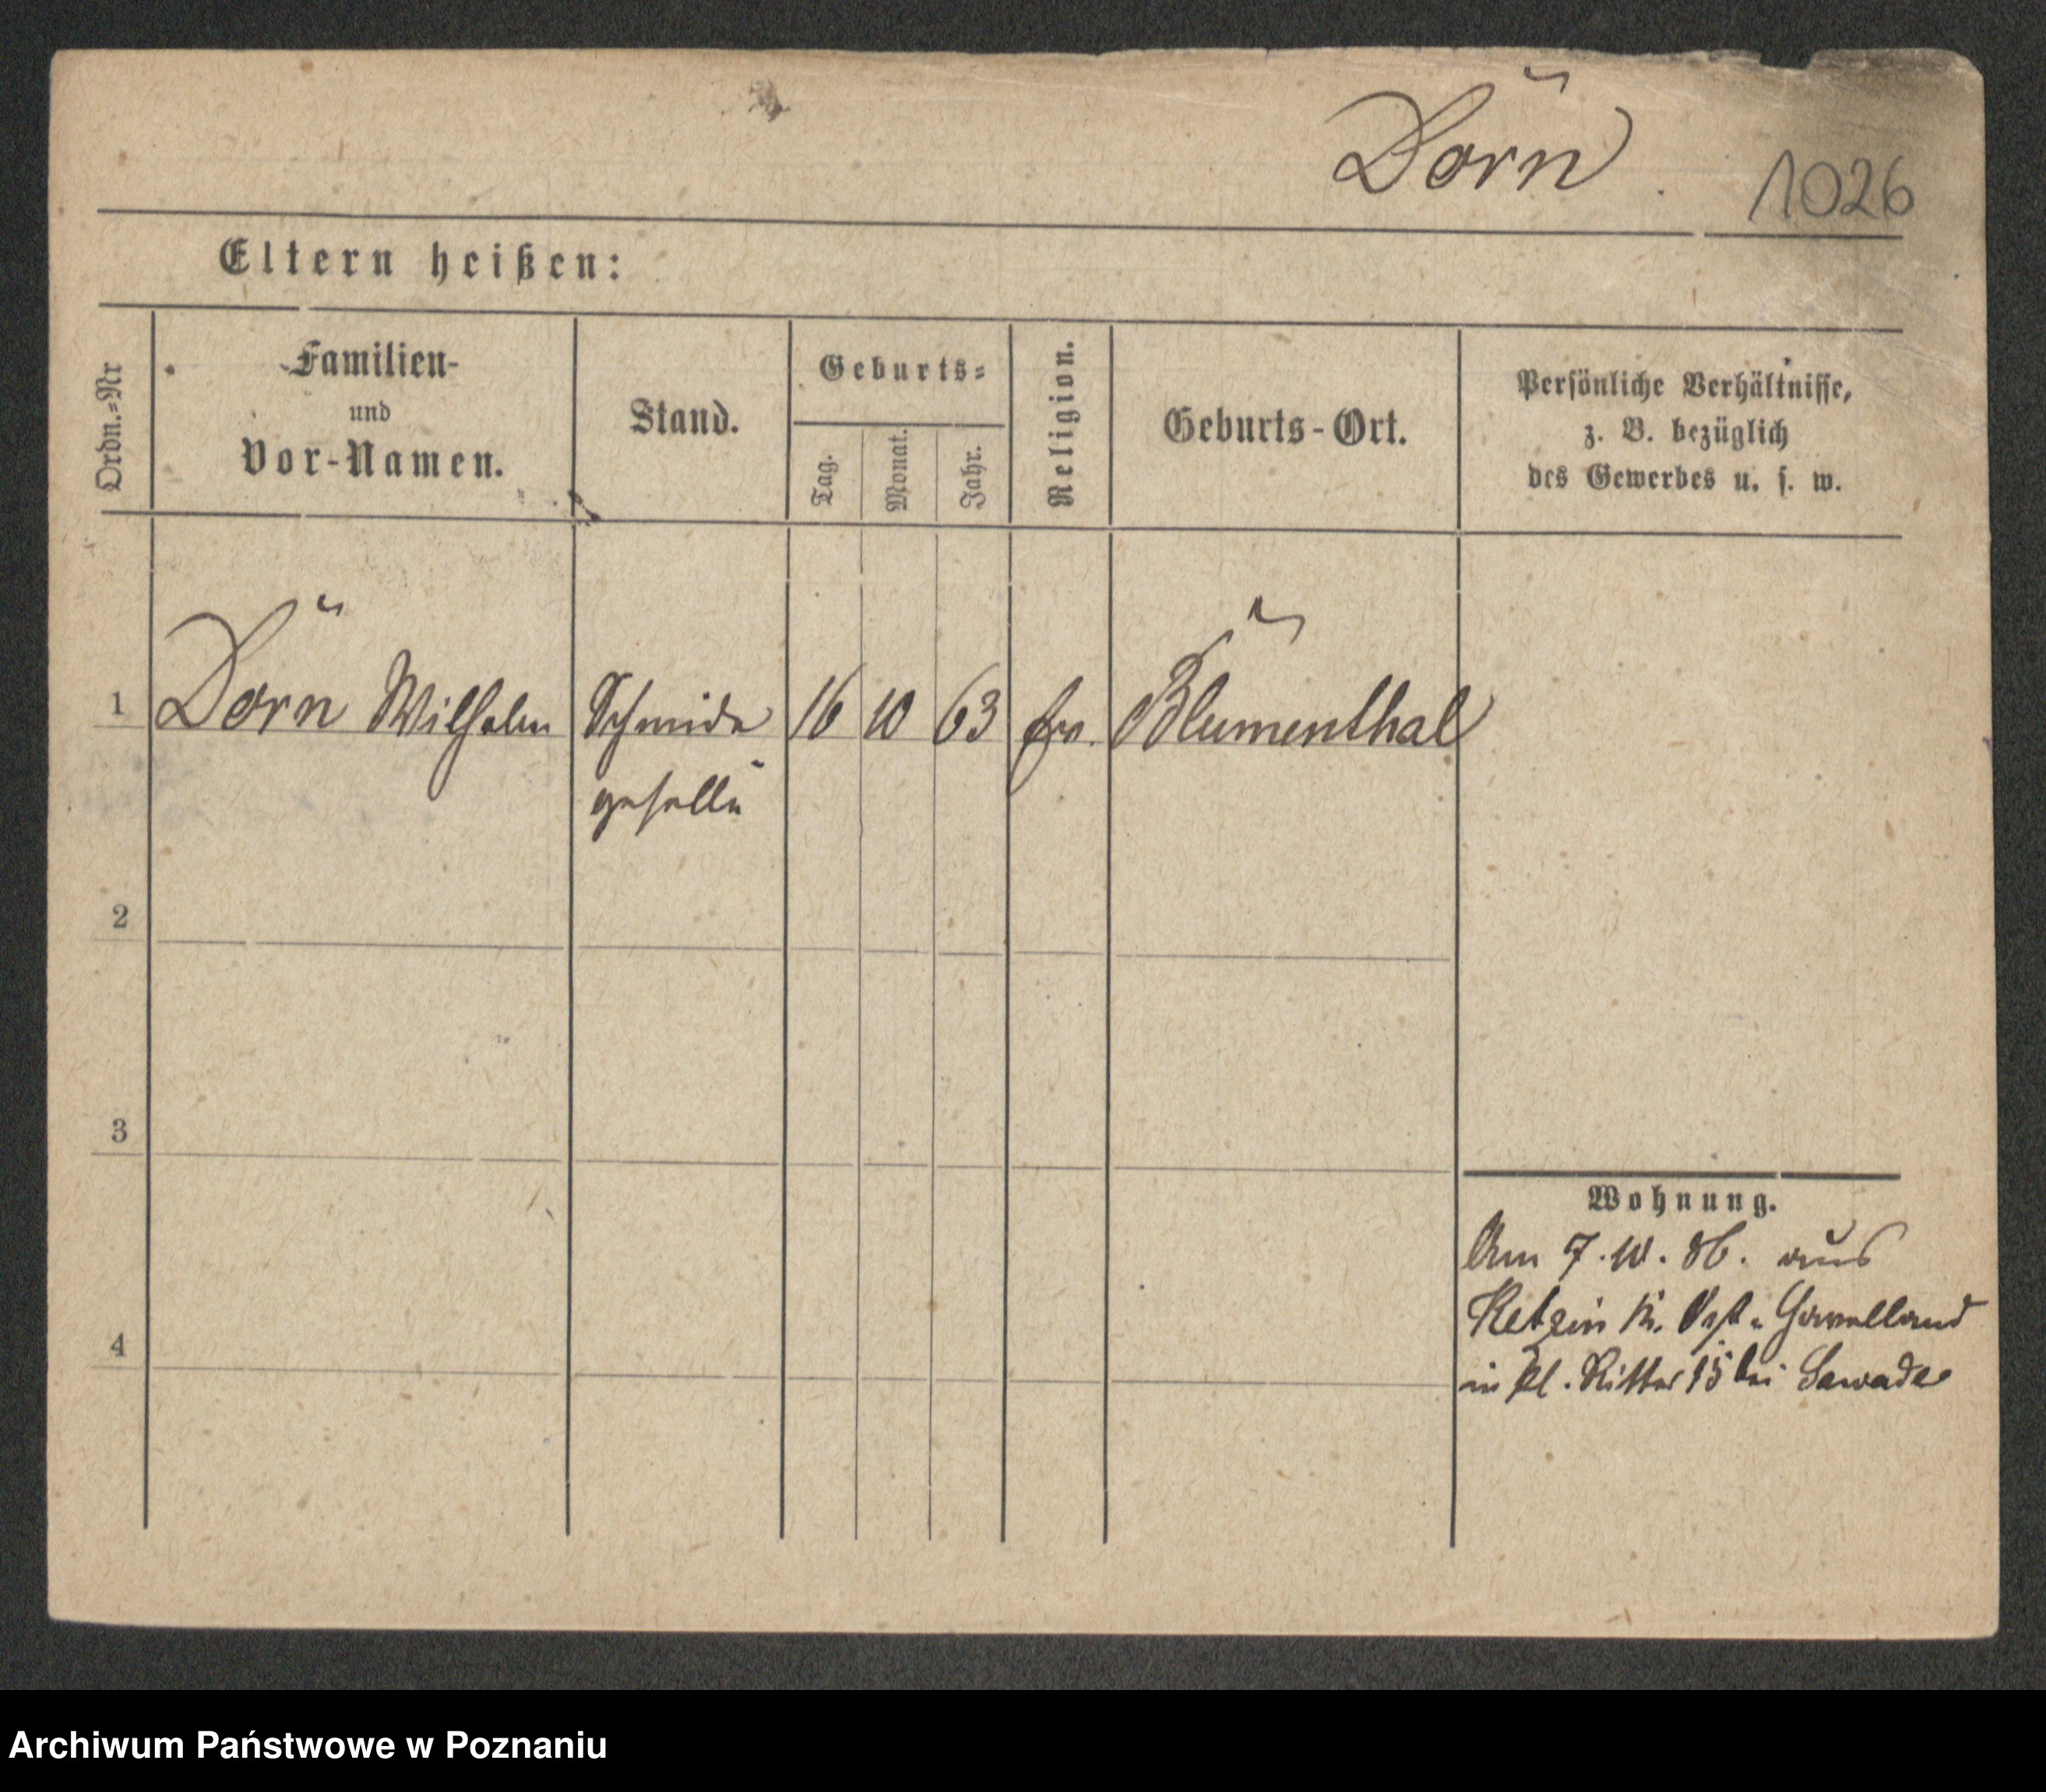 Dörn
1026
Eltern heißen:
Ordn.=Nr
Familien-
und
Vor-Namen.
Stand.
Geburts=
Tag.
Monat.
Jahr.
Religion.
Geburts-Ort.
Persönliche Verhältnisse,
z. B. bezüglich
des Gewerbes u. s. w.
1 Dörn Wilhelm Schmide 16 10 63 Blumenthal
geselle
2
3
4
Wohnung.
Am 7.10.86. aus
Ketzin Kr. Ost-Havelland
in Kl. Ritter 15 bei Sawade
Archiwum Państwowe w Poznaniu